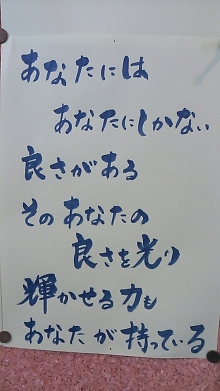 あなたには
あなたにしかない
良さがある
そのあなたの
良さを光り
輝かせる力も
あなたが持っている